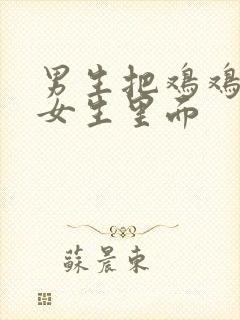 男生把鸡鸡
女生里而
蘇晨東